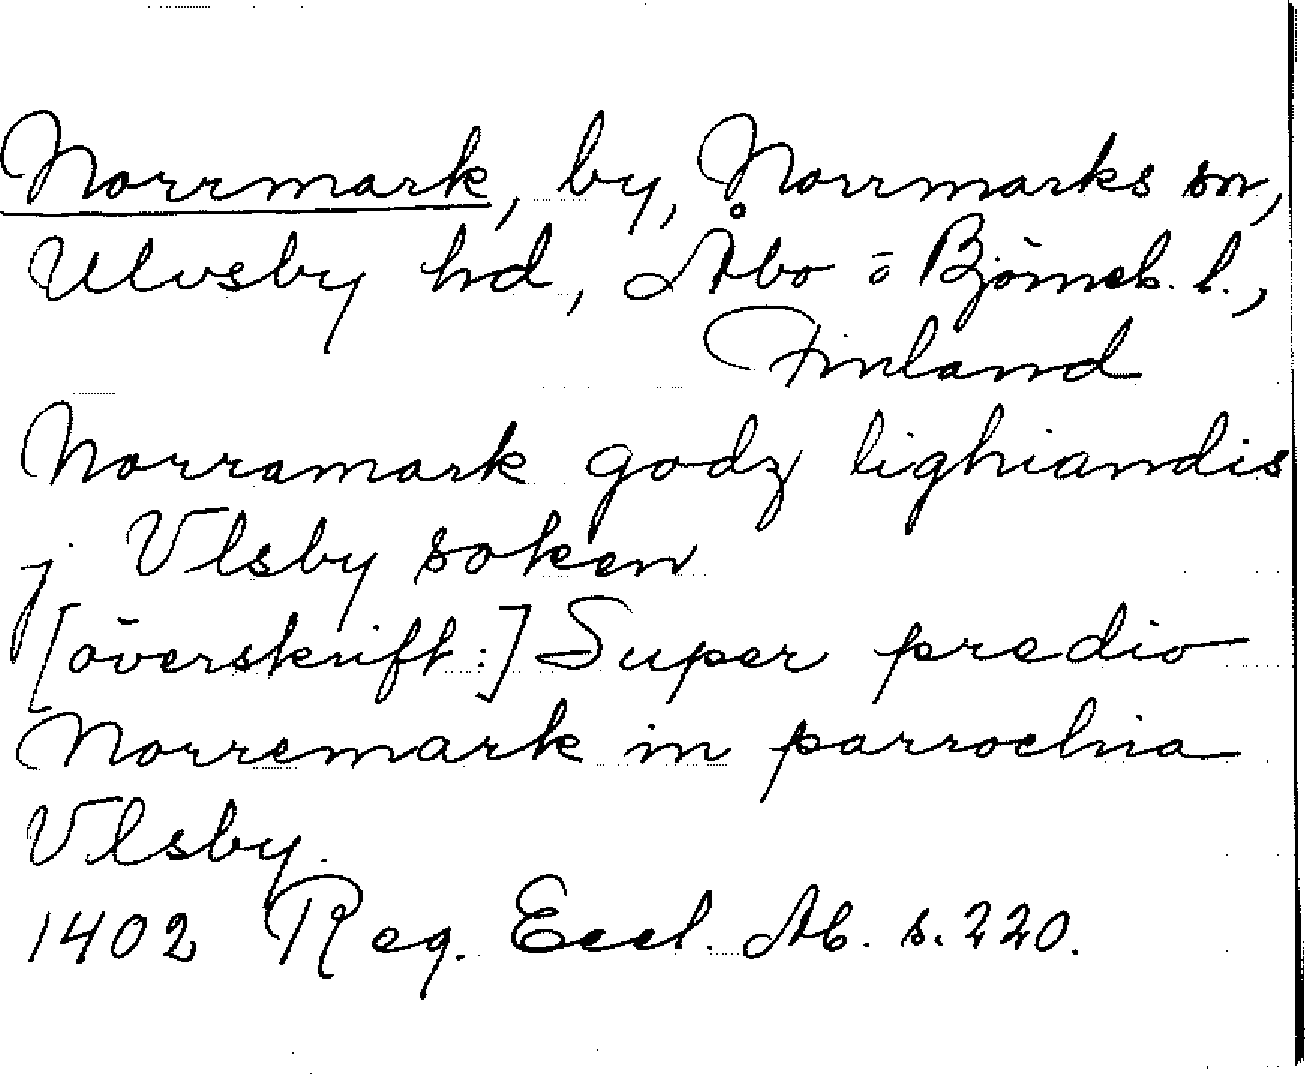 Norrmark, by, Norrmarks sn,
Ulvsby hd, Åbo o Björneb. l.,
Finland
Norramark godz lighiandis
j Vlsby soken
[överskrift:] Super predio
Norremark in parrochia
Vlsby.
1402 Reg. Eccl. Ab. s. 220.